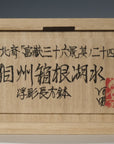 北斎「富嶽三十六景」其ノ二十四
相州箱根湖水
浮彫長方鉢